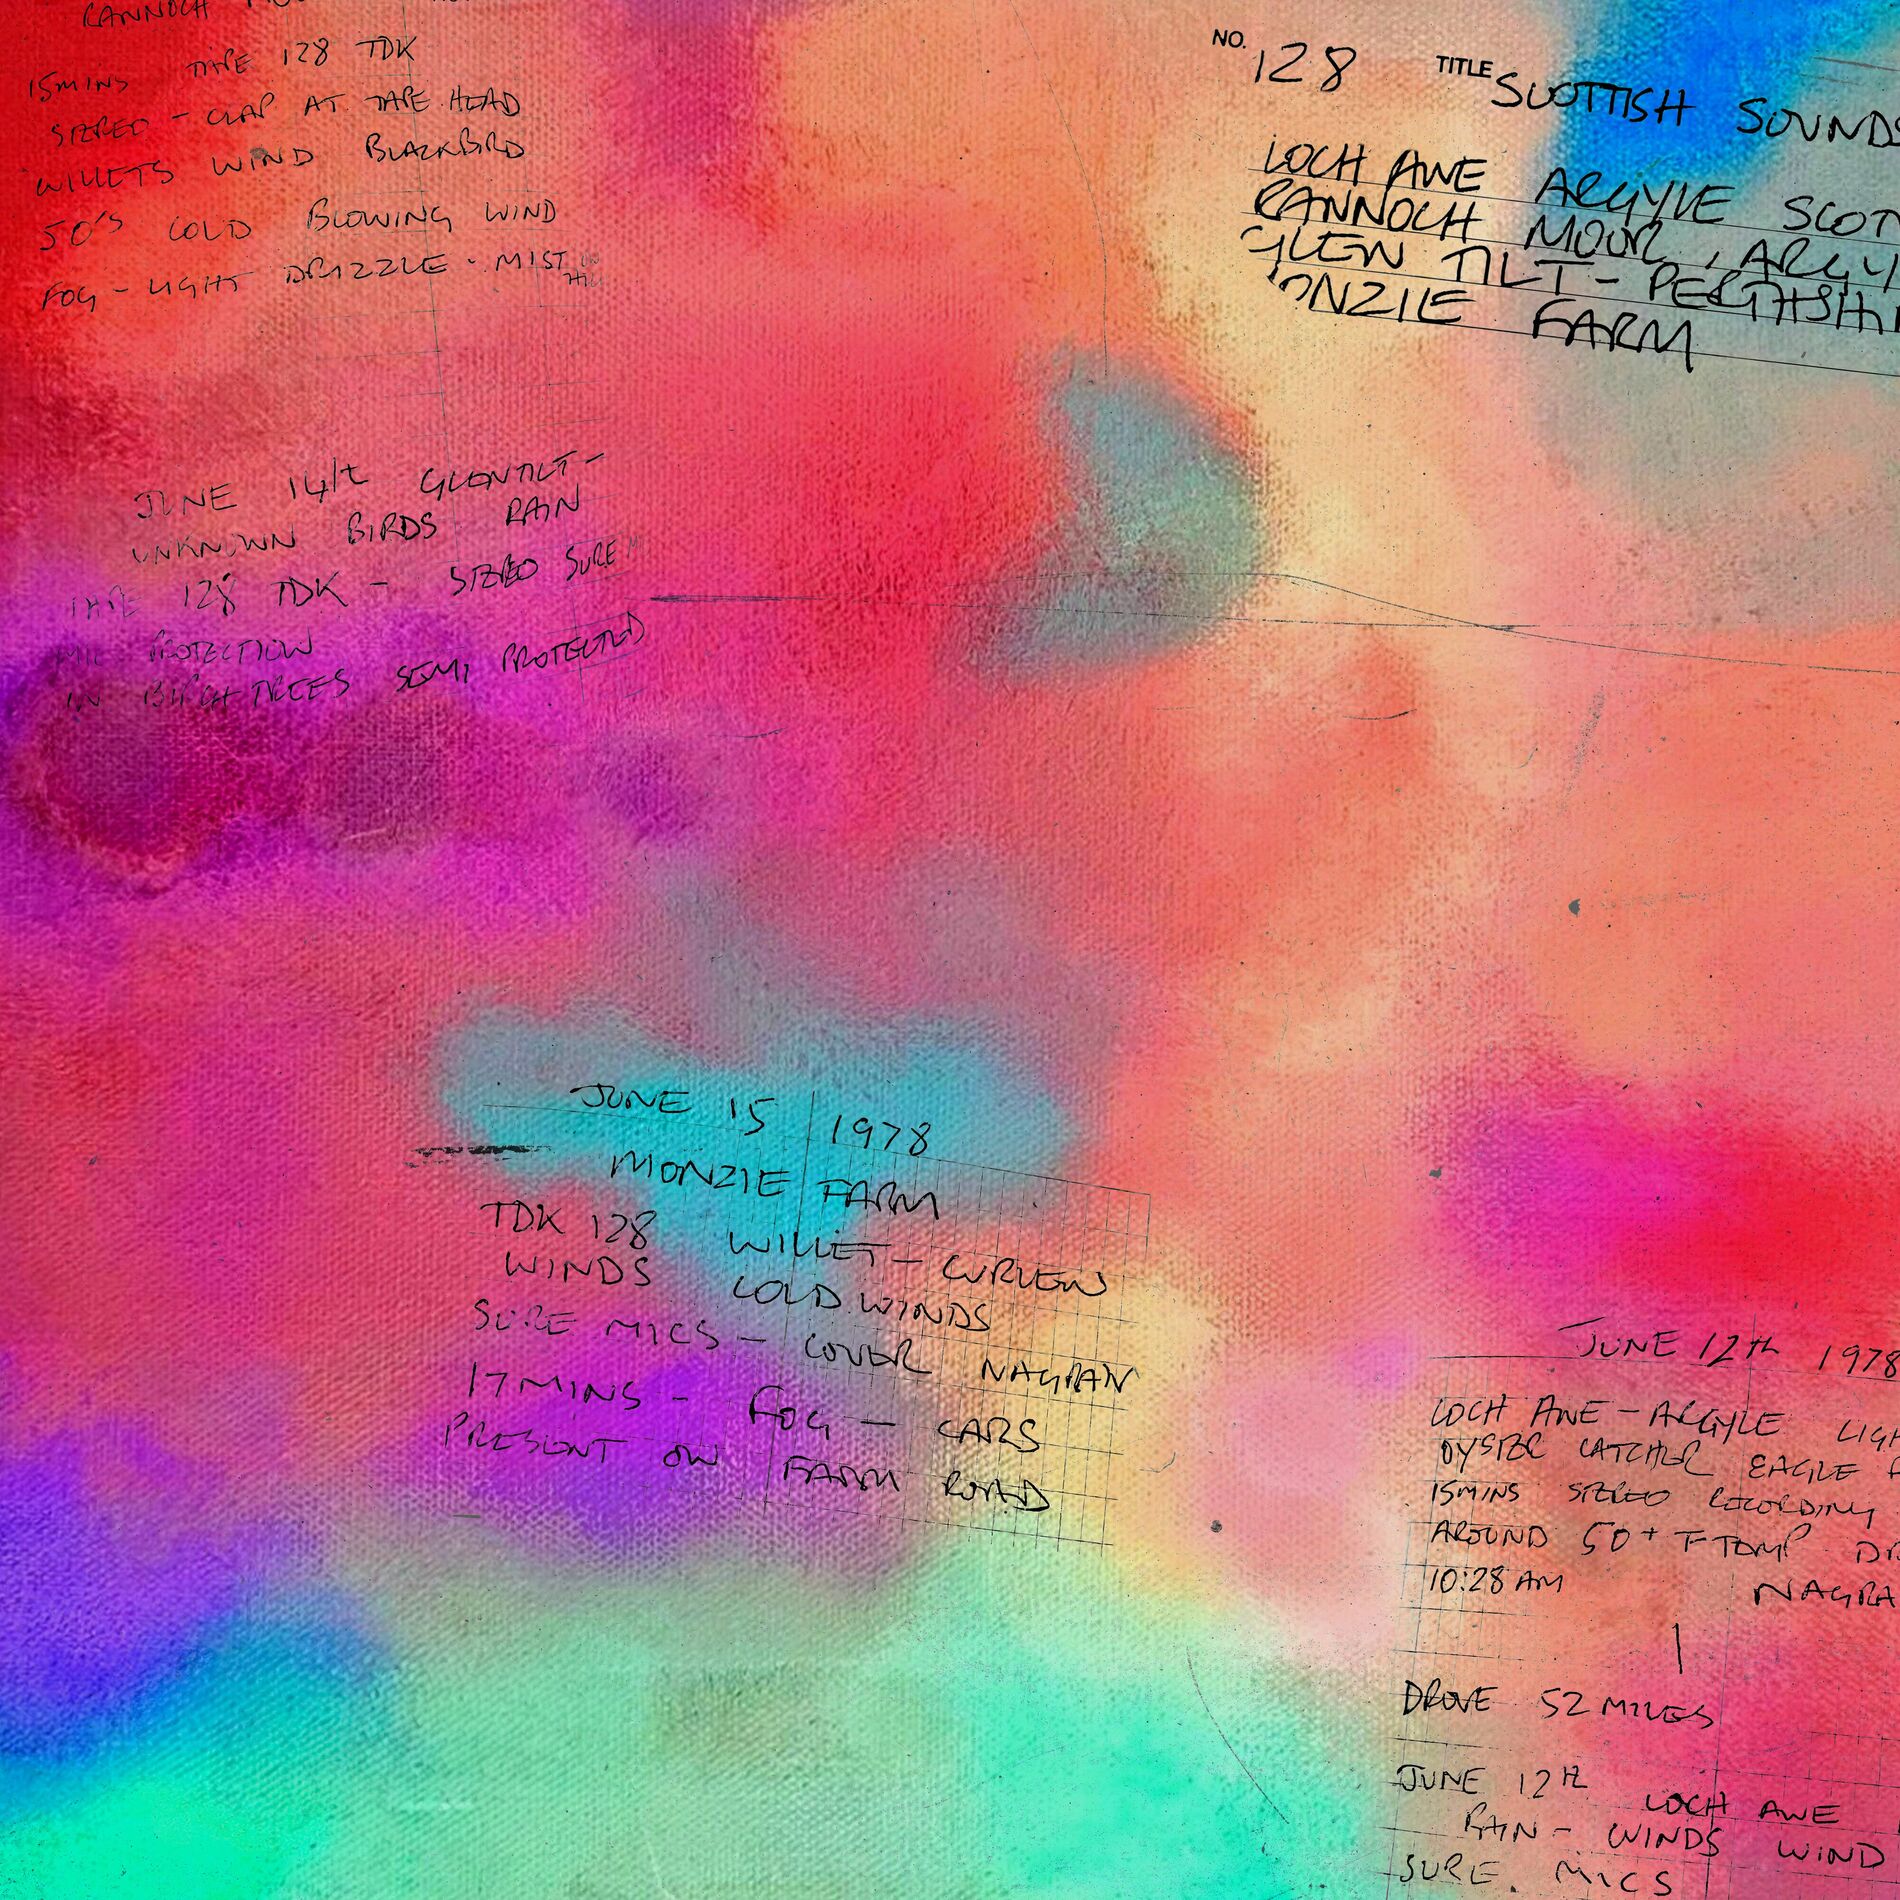 RANNOCH
15MINS TAPE 128 TDK
STEREO - CLAP AT TAPE HEAD
WILLETS WIND BLACKBIRD
50'S COLD BLOWING WIND
FOG - LIGHT DRIZZLE - MIST ON HILL
NO. 128 TITLE SCOTTISH SOUNDS
LOCH AWE ARGYLE SCOT
RANNOCH MOOR, ARGY
GLEN TILT - PERTHSHI
ONZIE FARM
JUNE 14th GLENTILT -
UNKNOWN BIRDS RAIN
TAPE 128 TDK - STEREO SURE M
MIC PROTECTION
IN BIRCH TREES SEMI PROTECTED
JUNE 15 1978
MONZIE FARM
TDK 128 WILLET - CURLEW
WINDS COLD WINDS
SURE MICS - COVER NAGRAN
17 MINS - FOG - CARS
PRESENT ON FARM ROAD
JUNE 12th 1978
LOCH AWE - ARGYLE LIGH
OYSTER CATCHER EAGLE
15MINS STEREO RECORDING
AROUND 50+ F TEMP DR
10:28 AM NAGRA
DROVE 52 MILES
JUNE 12th LOCH AWE
RAIN - WINDS WIND
SURE MICS